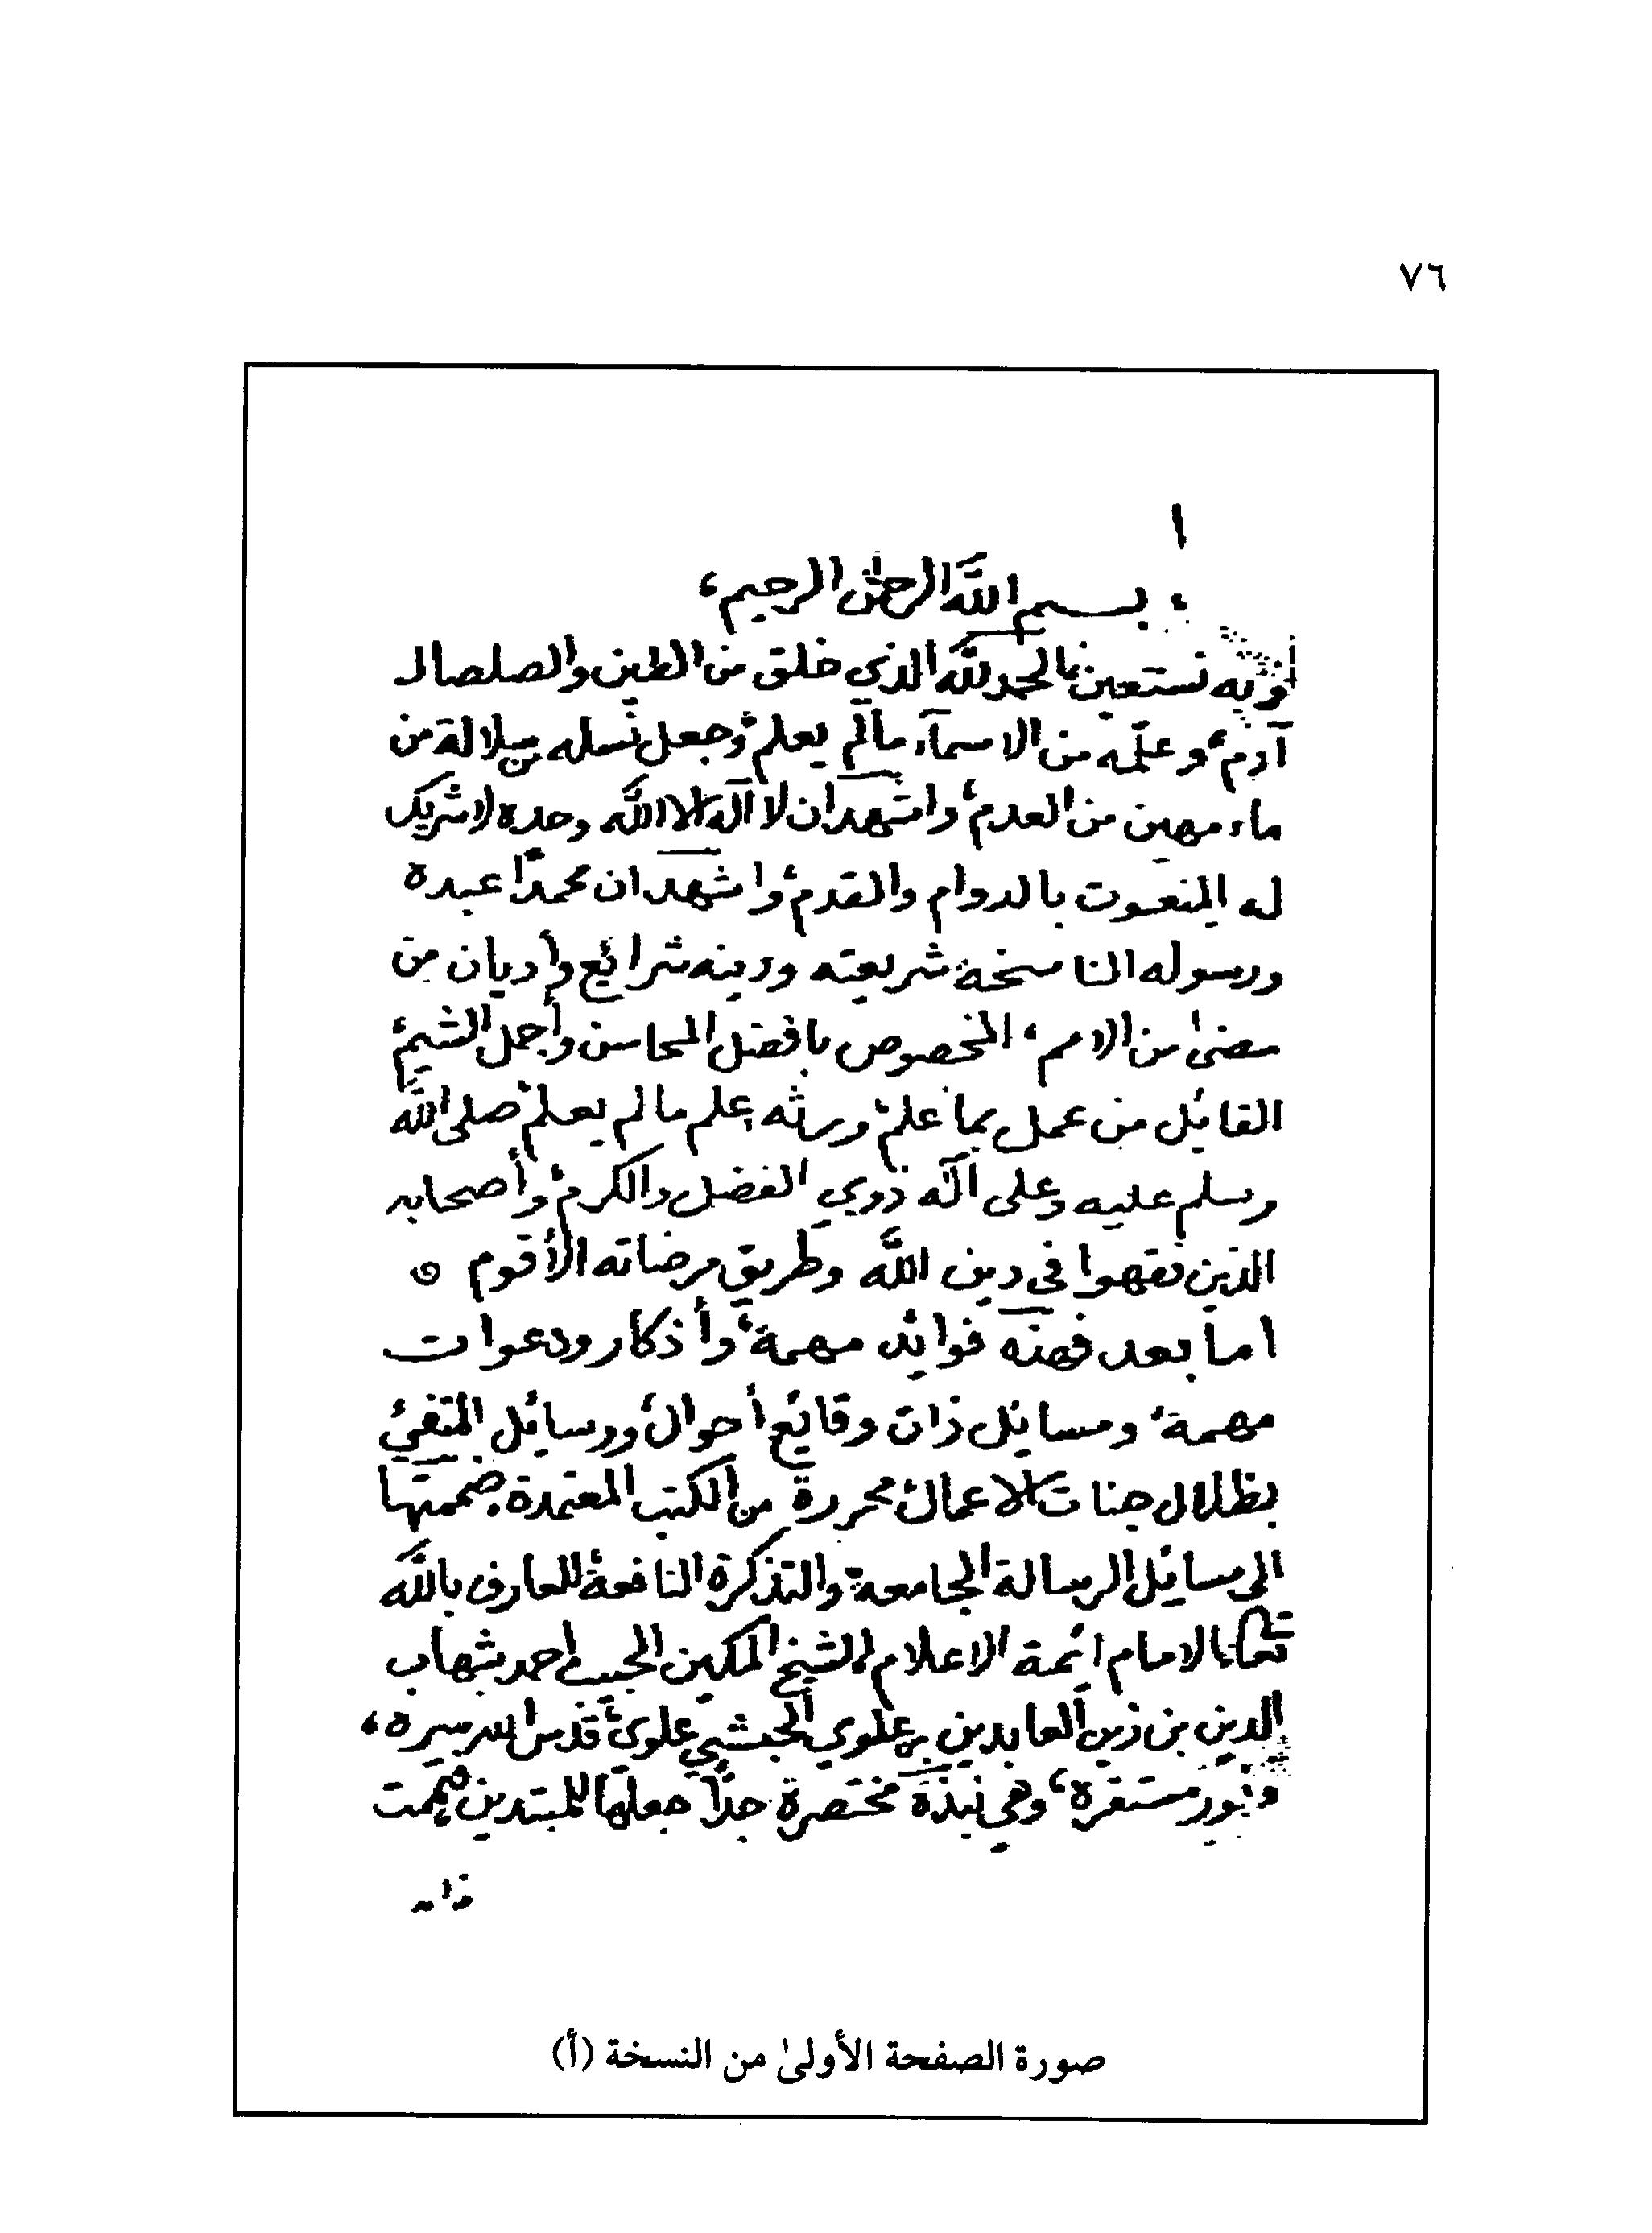 ٧٦
١
، بسم الله الرحمٰن الرحيم،
وبه نستعين، الحمد لله الذي خلق من الطين والصلصال
آدم، وعلّمه من الاسمآء مالم يعلم، وجعل نسله من سلالة من
ماء مهين من العدم، واشهد ان لا آله الا الله وحده لا شريك
له المنعوت بالدوام والقدم، واشهد ان محمدًا عبده
ورسوله الناسخة شريعته ودينه شرائع وأديان من
مضىٰ من الامم، المخصوص بافضل المحاسن وأجمل الشيم،
القائل من عمل بما علم، ورثه علم مالم يعلم، صلى الله
وسلم عليه وعلى آله ذوي الفضل والكرم، وأصحابه
الذين فقهوا في دين الله وطريق مرضاته الأقوم
اما بعد فهذه فوائد مهمة، وأذكار ودعوات
مهمة، ومسائل ذات وقائع أحوال، ورسائل
بظلال جنات الاعمال، محررة من الكتب المعتمدة، ضممتها
الى مسائل الرسالة الجامعة، والتذكرة النافعة، للعارف بالله
تعالى الامام ائمة الاعلام، الشيخ المكين الحبيب احمد شهاب
الدين بن زين العابدين بن علوي الحبشي علوي، قدس الله سره،
ونور مستقره، وهي نبذة مختصرة جدًا جعلها للمبتدين،
صورة الصفحة الأولىٰ من النسخة (أ)